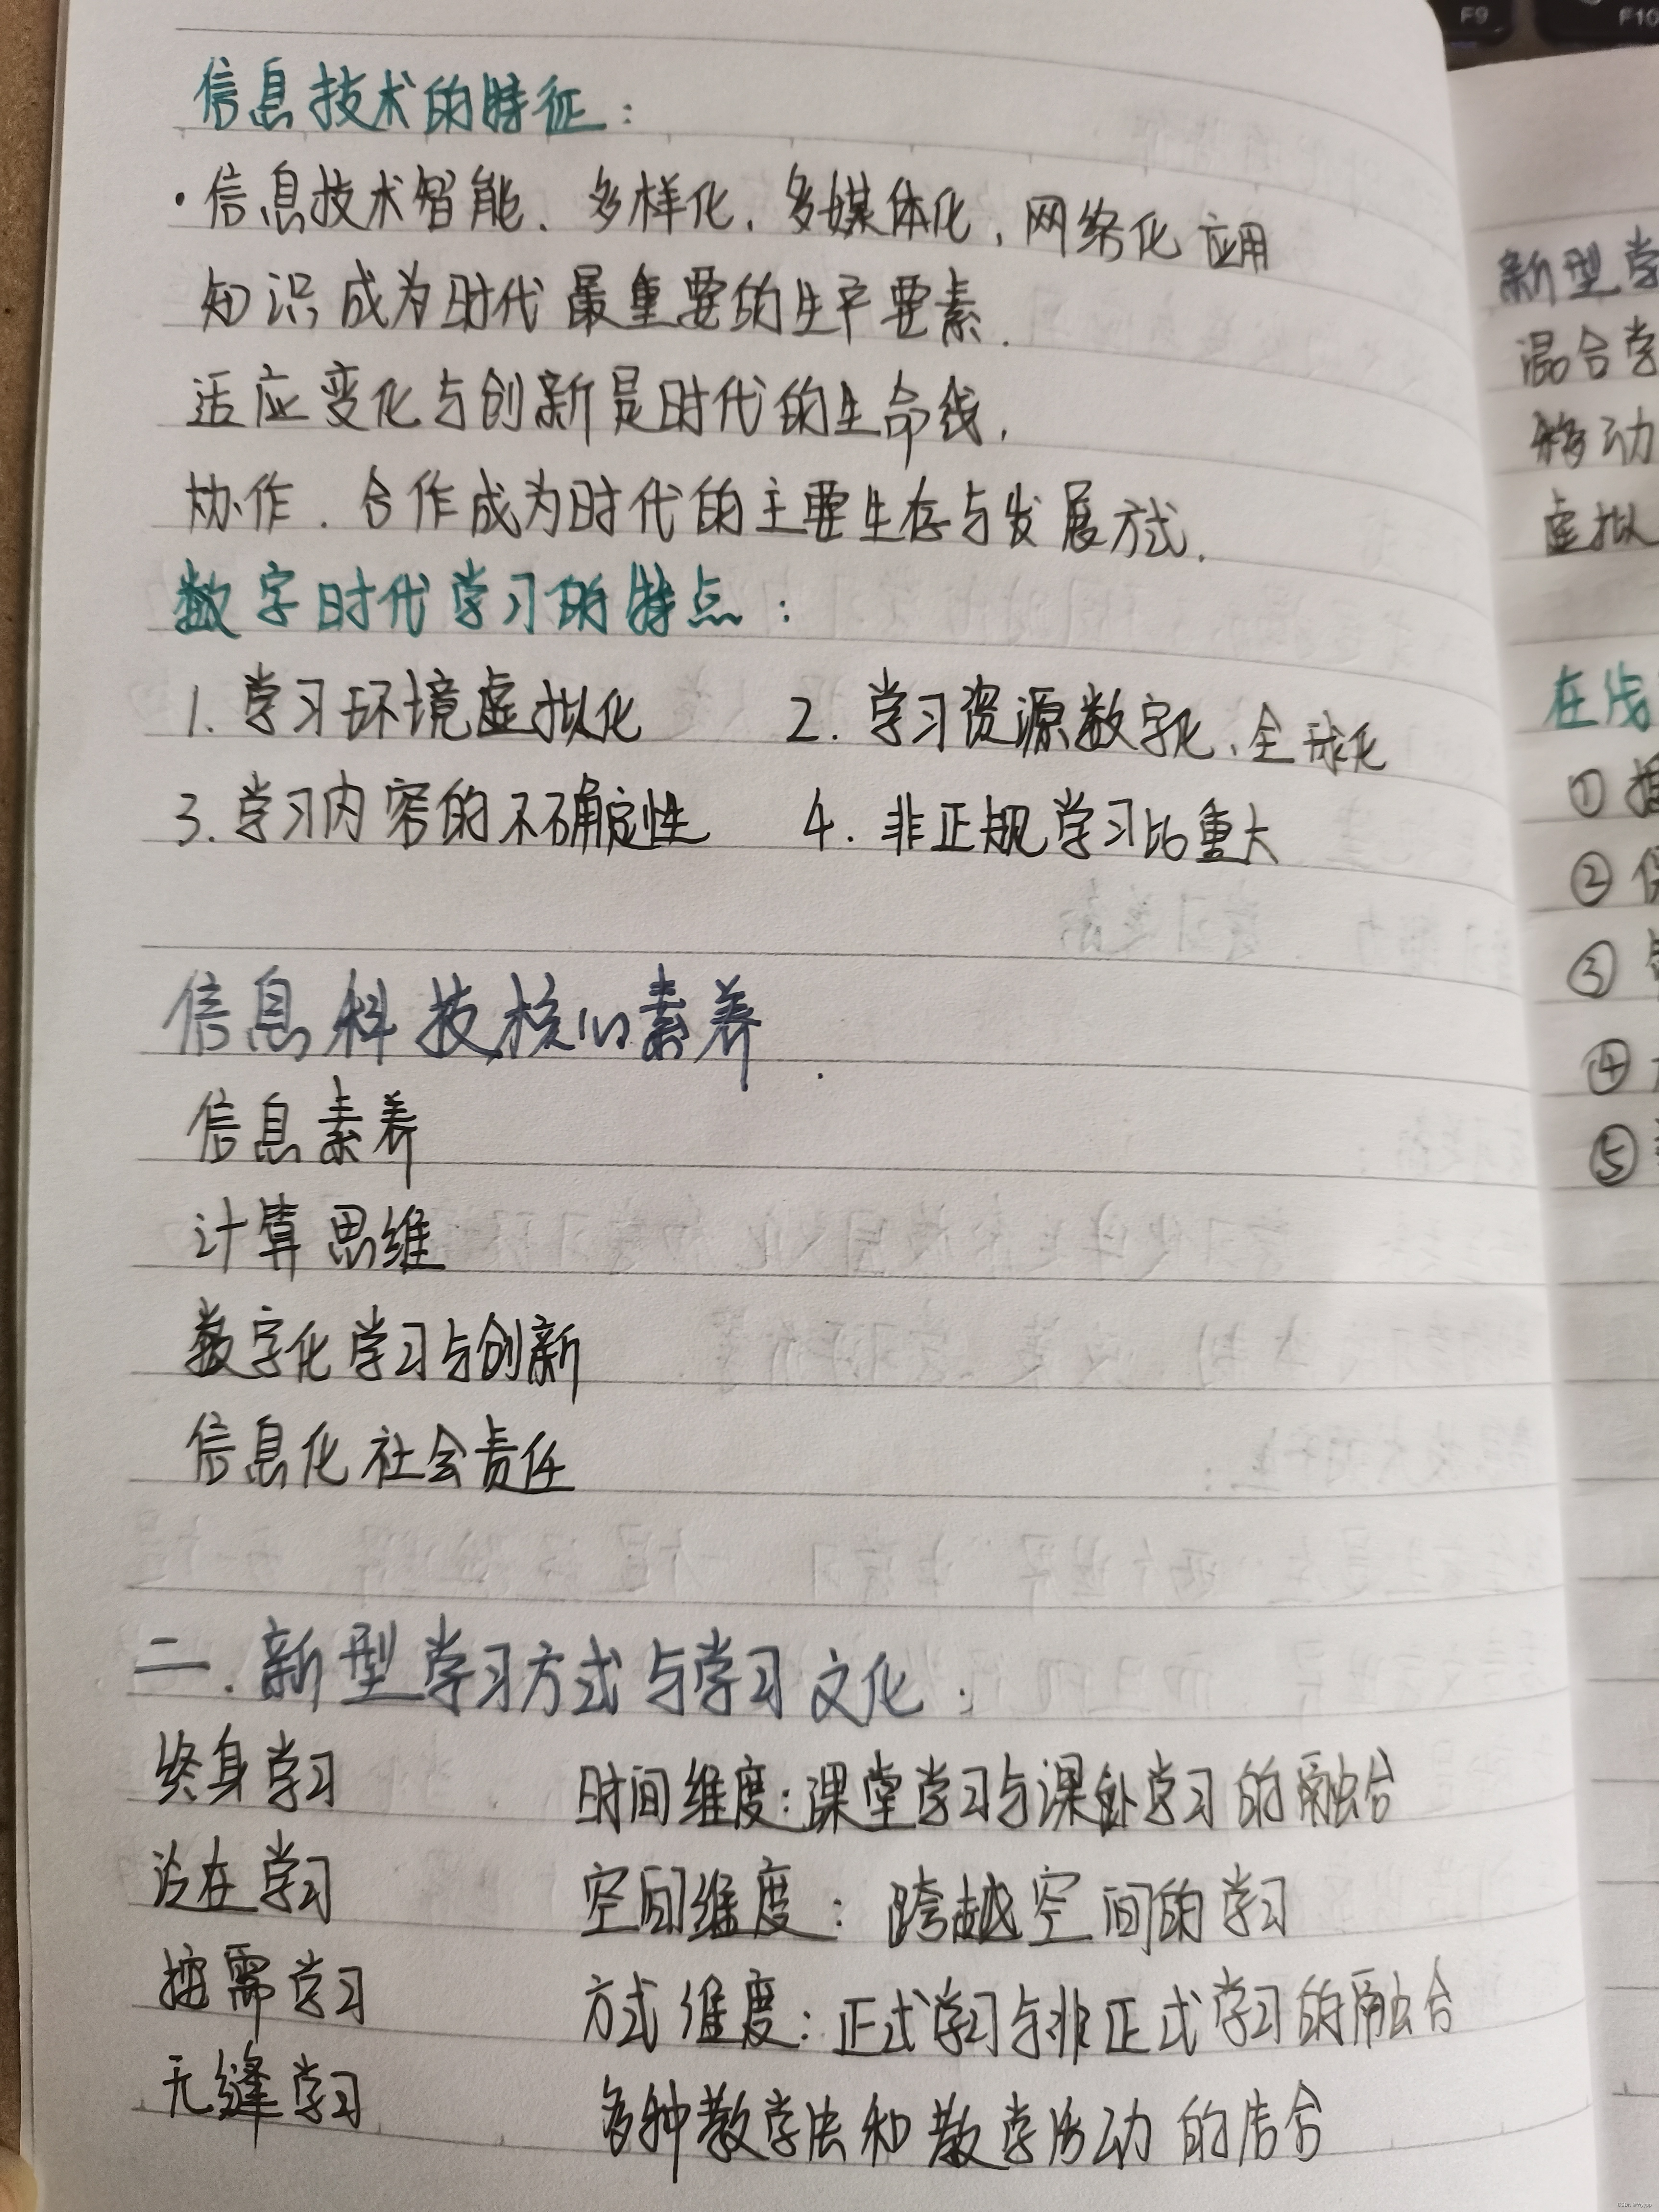 信息技术的特征：
·信息技术智能、多样化、多媒体化，网络化应用
知识成为时代最重要的生产要素.
适应变化与创新是时代的生命线，
协作．合作成为时代的主要生存与发展方式.
数字时代学习的特点：
1. 学习环境虚拟化 2. 学习资源数字化、全球化
3. 学习内容的不确定性 4. 非正规学习比重大
信息科技核心素养.
信息素养
计算思维
数字化学习与创新
信息化社会责任
二. 新型学习方式与学习文化：
终身学习 时间维度：课堂学习与课外学习的融合
泛在学习 空间维度：跨越空间的学习
按需学习 方式维度：正式学习与非正式学习的融合
无缝学习 多种教学法和教学活动的结合
新型学
混合学
移动
虚拟
在线
①
②
③
④
⑤
F9
F10